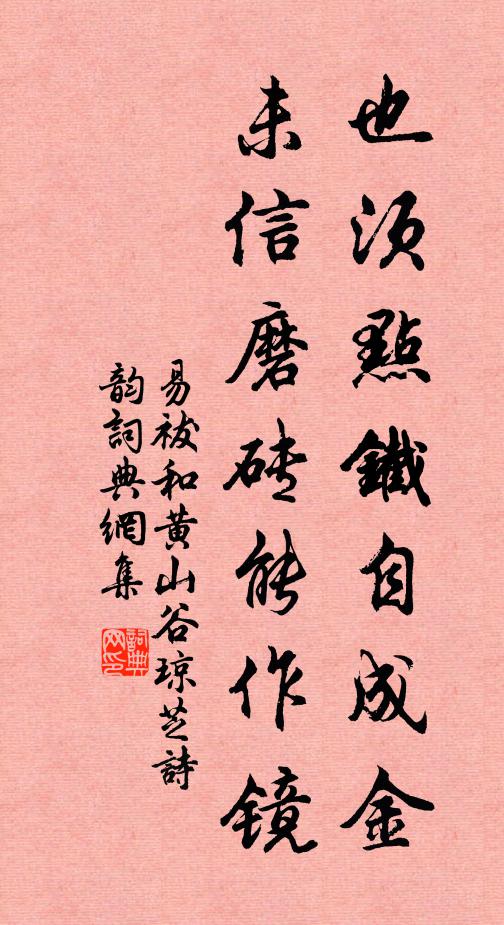 也須點鐵自成金
未信磨磚能作鏡
易祓和黄山谷琼芝詩
韵詞典網集
詞典网印